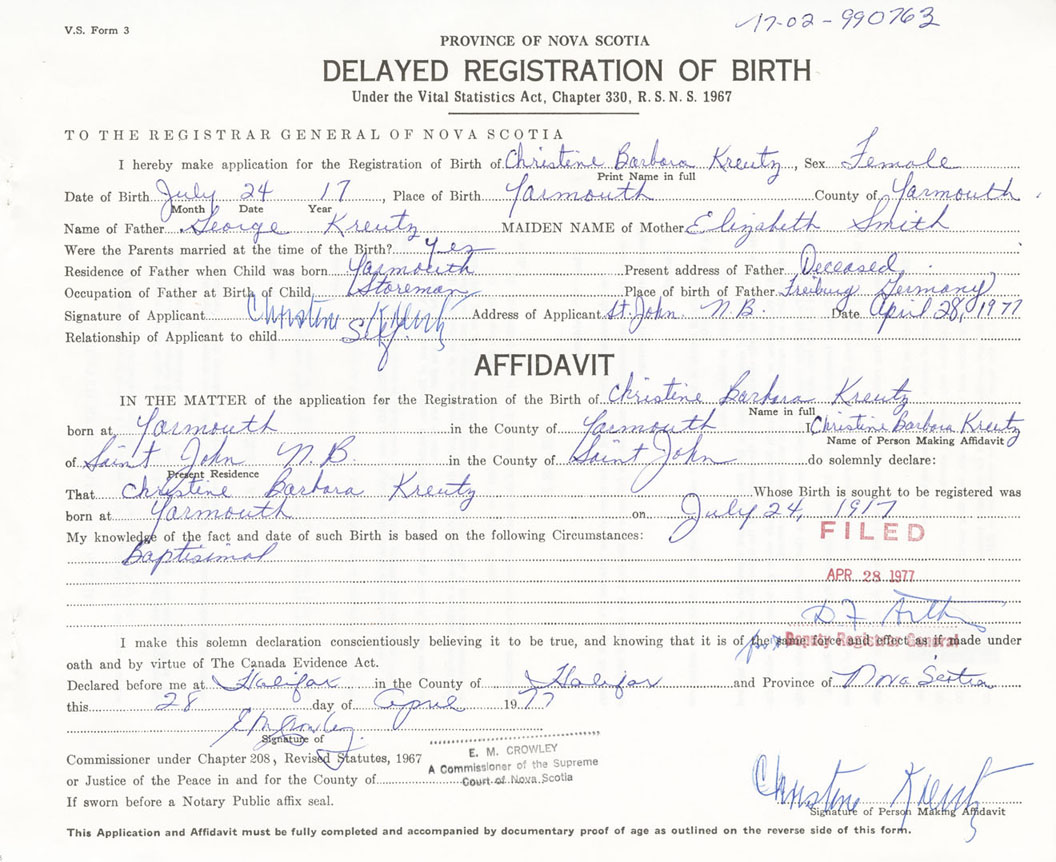 V.S. Form 3
17-02-990763
PROVINCE OF NOVA SCOTIA
DELAYED REGISTRATION OF BIRTH
Under the Vital Statistics Act, Chapter 330, R. S. N. S. 1967
TO THE REGISTRAR GENERAL OF NOVA SCOTIA
I hereby make application for the Registration of Birth of Christine Barbara Kreutz, Sex Female
Print Name in full
Date of Birth July 24 17, Place of Birth Yarmouth County of Yarmouth
Month Date Year
Name of Father George Kreutz MAIDEN NAME of Mother Elizabeth Smith
Were the Parents married at the time of the Birth? yes
Residence of Father when Child was born Yarmouth Present address of Father Deceased
Occupation of Father at Birth of Child Storeman Place of birth of Father Freiburg Germany
Signature of Applicant Christine Kreutz Address of Applicant St. John N.B. Date April 28, 1977
Relationship of Applicant to child Self
AFFIDAVIT
IN THE MATTER of the application for the Registration of the Birth of Christine Barbara Kreutz
Name in full
born at Yarmouth in the County of Yarmouth I Christine Barbara Kreutz
Name of Person Making Affidavit
of Saint John N.B. in the County of Saint John do solemnly declare:
Present Residence
That Christine Barbara Kreutz Whose Birth is sought to be registered was
born at Yarmouth on July 24, 1917
My knowledge of the fact and date of such Birth is based on the following Circumstances:
Baptisimal
FILED
APR 28 1977
I make this solemn declaration conscientiously believing it to be true, and knowing that it is of the same force and effect as if made under
for Deputy Registrar General
oath and by virtue of The Canada Evidence Act.
Declared before me at Halifax in the County of Halifax and Province of Nova Scotia
this 28 day of April 1977
E M Crowley
Signature of
Commissioner under Chapter 208, Revised Statutes, 1967
or Justice of the Peace in and for the County of
E. M. CROWLEY
A Commissioner of the Supreme
Court of Nova Scotia
If sworn before a Notary Public affix seal.
Christine Kreutz
Signature of Person Making Affidavit
This Application and Affidavit must be fully completed and accompanied by documentary proof of age as outlined on the reverse side of this form.